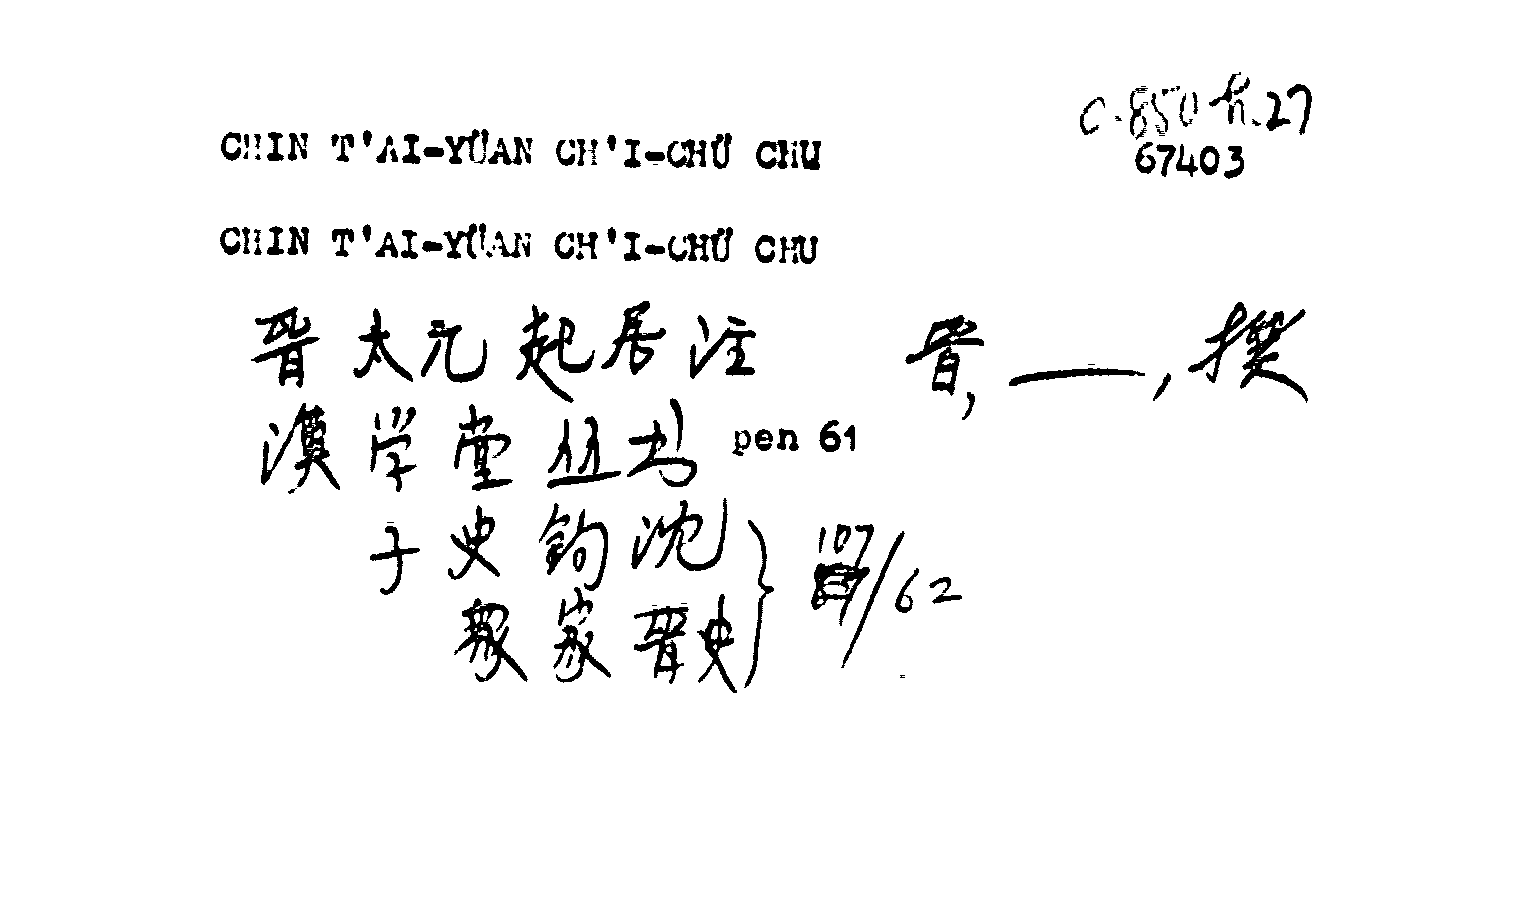 C.850 h.27
67403
CHIN T'AI-YÜAN CH'I-CHÜ CHU
CHIN T'AI-YÜAN CH'I-CHÜ CHU
晉太元起居注 晋, ——, 撰
漢学堂丛书 pen 61
子史鈎沈
眾家晉史 } 107/62